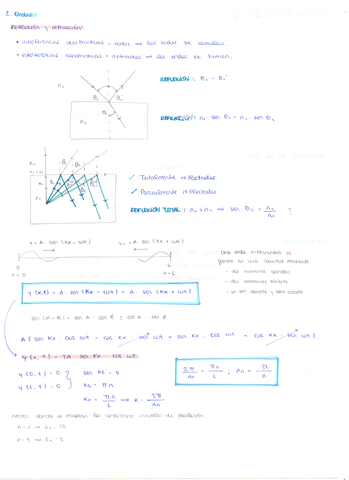 2. Ondas
Reflexión y refracción:
• interferencias destructivas = nodos ⟹ las ondas se cancelan.
• interferencias constructivas = antinodos ⟹ las ondas se suman.
n₁
REFLEXIÓN : θ₁ = θ₁'
n₂
REFRACCIÓN: n₁ · sen θ₁ = n₂ · sen θ₂
✓ Totalmente reflectadas
✓ Parcialmente reflectadas
REFLEXIÓN TOTAL: n₁ > n₂ ⟹ sen θ₁ = n₂/n₁ ?
y = A sen (Kx - wt)
y = A sen (Kx + wt)
x = 0
x = L
Una onda estacionaria se
genera en una cavidad resonante
- dos extremos cerrados
- dos extremos abiertos
- un ext. abierto y otro cerrado
y(x,t) = A · sen (Kx - wt) + A · sen (Kx + wt)
sen (A ± B) = sen A cos B ± cos A sen B
A (sen Kx · cos wt - cos Kx · sen wt + sen Kx · cos wt + cos Kx · sen wt)
y(x,t) = 2A sen Kx · cos wt
y(0,t) = 0
y(L,t) = 0
sen KL = 0
KL = πn
Kn = πn/L ⟹ K = 2π/λn
2π/λn = πn/L ; λn = 2L/n
n = 1 ⟹ λ₁ = 2L
n = 2 ⟹ λ₂ = L